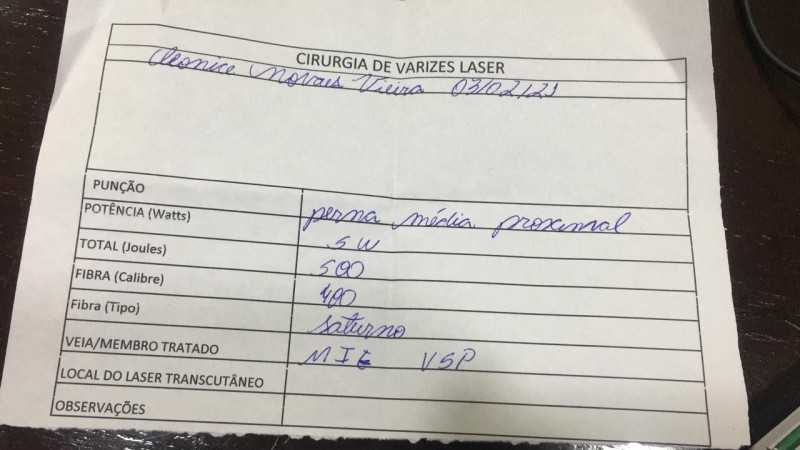 CIRURGIA DE VARIZES LASER
Cleonice Novaes Vieira 03/02/21
PUNÇÃO perna média proximal
POTÊNCIA (Watts) 5 W
TOTAL (Joules) 500
FIBRA (Calibre) 400
Fibra (Tipo) Saturno
VEIA/MEMBRO TRATADO MIE VSP
LOCAL DO LASER TRANSCUTÂNEO
OBSERVAÇÕES